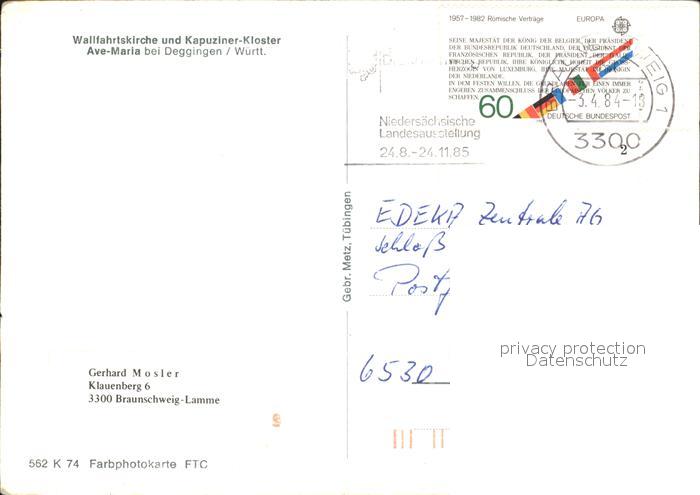 Wallfahrtskirche und Kapuziner-Kloster
Ave-Maria bei Deggingen / Württ.
1957–1982 Römische Verträge EUROPA
SEINE MAJESTÄT DER KÖNIG DER BELGIER, DER PRÄSIDENT
DER BUNDESREPUBLIK DEUTSCHLAND, DER PRÄSIDENT DER
REPUBLIK, IHRE KÖNIGLICHE HOHEIT DIE
HERZOGIN VON LUXEMBURG, IHRE MAJESTÄT
DER NIEDERLANDE.
IN DEM FESTEN WILLEN, DIE
ENGEREN ZUSAMMENSCHLUSS DER VÖLKER ZU
SCHAFFEN
60
DEUTSCHE BUNDESPOST
EIG 1
-3.4.84-18
3300
2
Niedersächsische
Landesausstellung
24.8.-24.11.85
Gebr. Metz, Tübingen
EDEKA Zentrale AG
Schloß
6530
privacy protection
Datenschutz
Gerhard Mosler
Klauenberg 6
3300 Braunschweig-Lamme
562 K 74 Farbphotokarte FTC